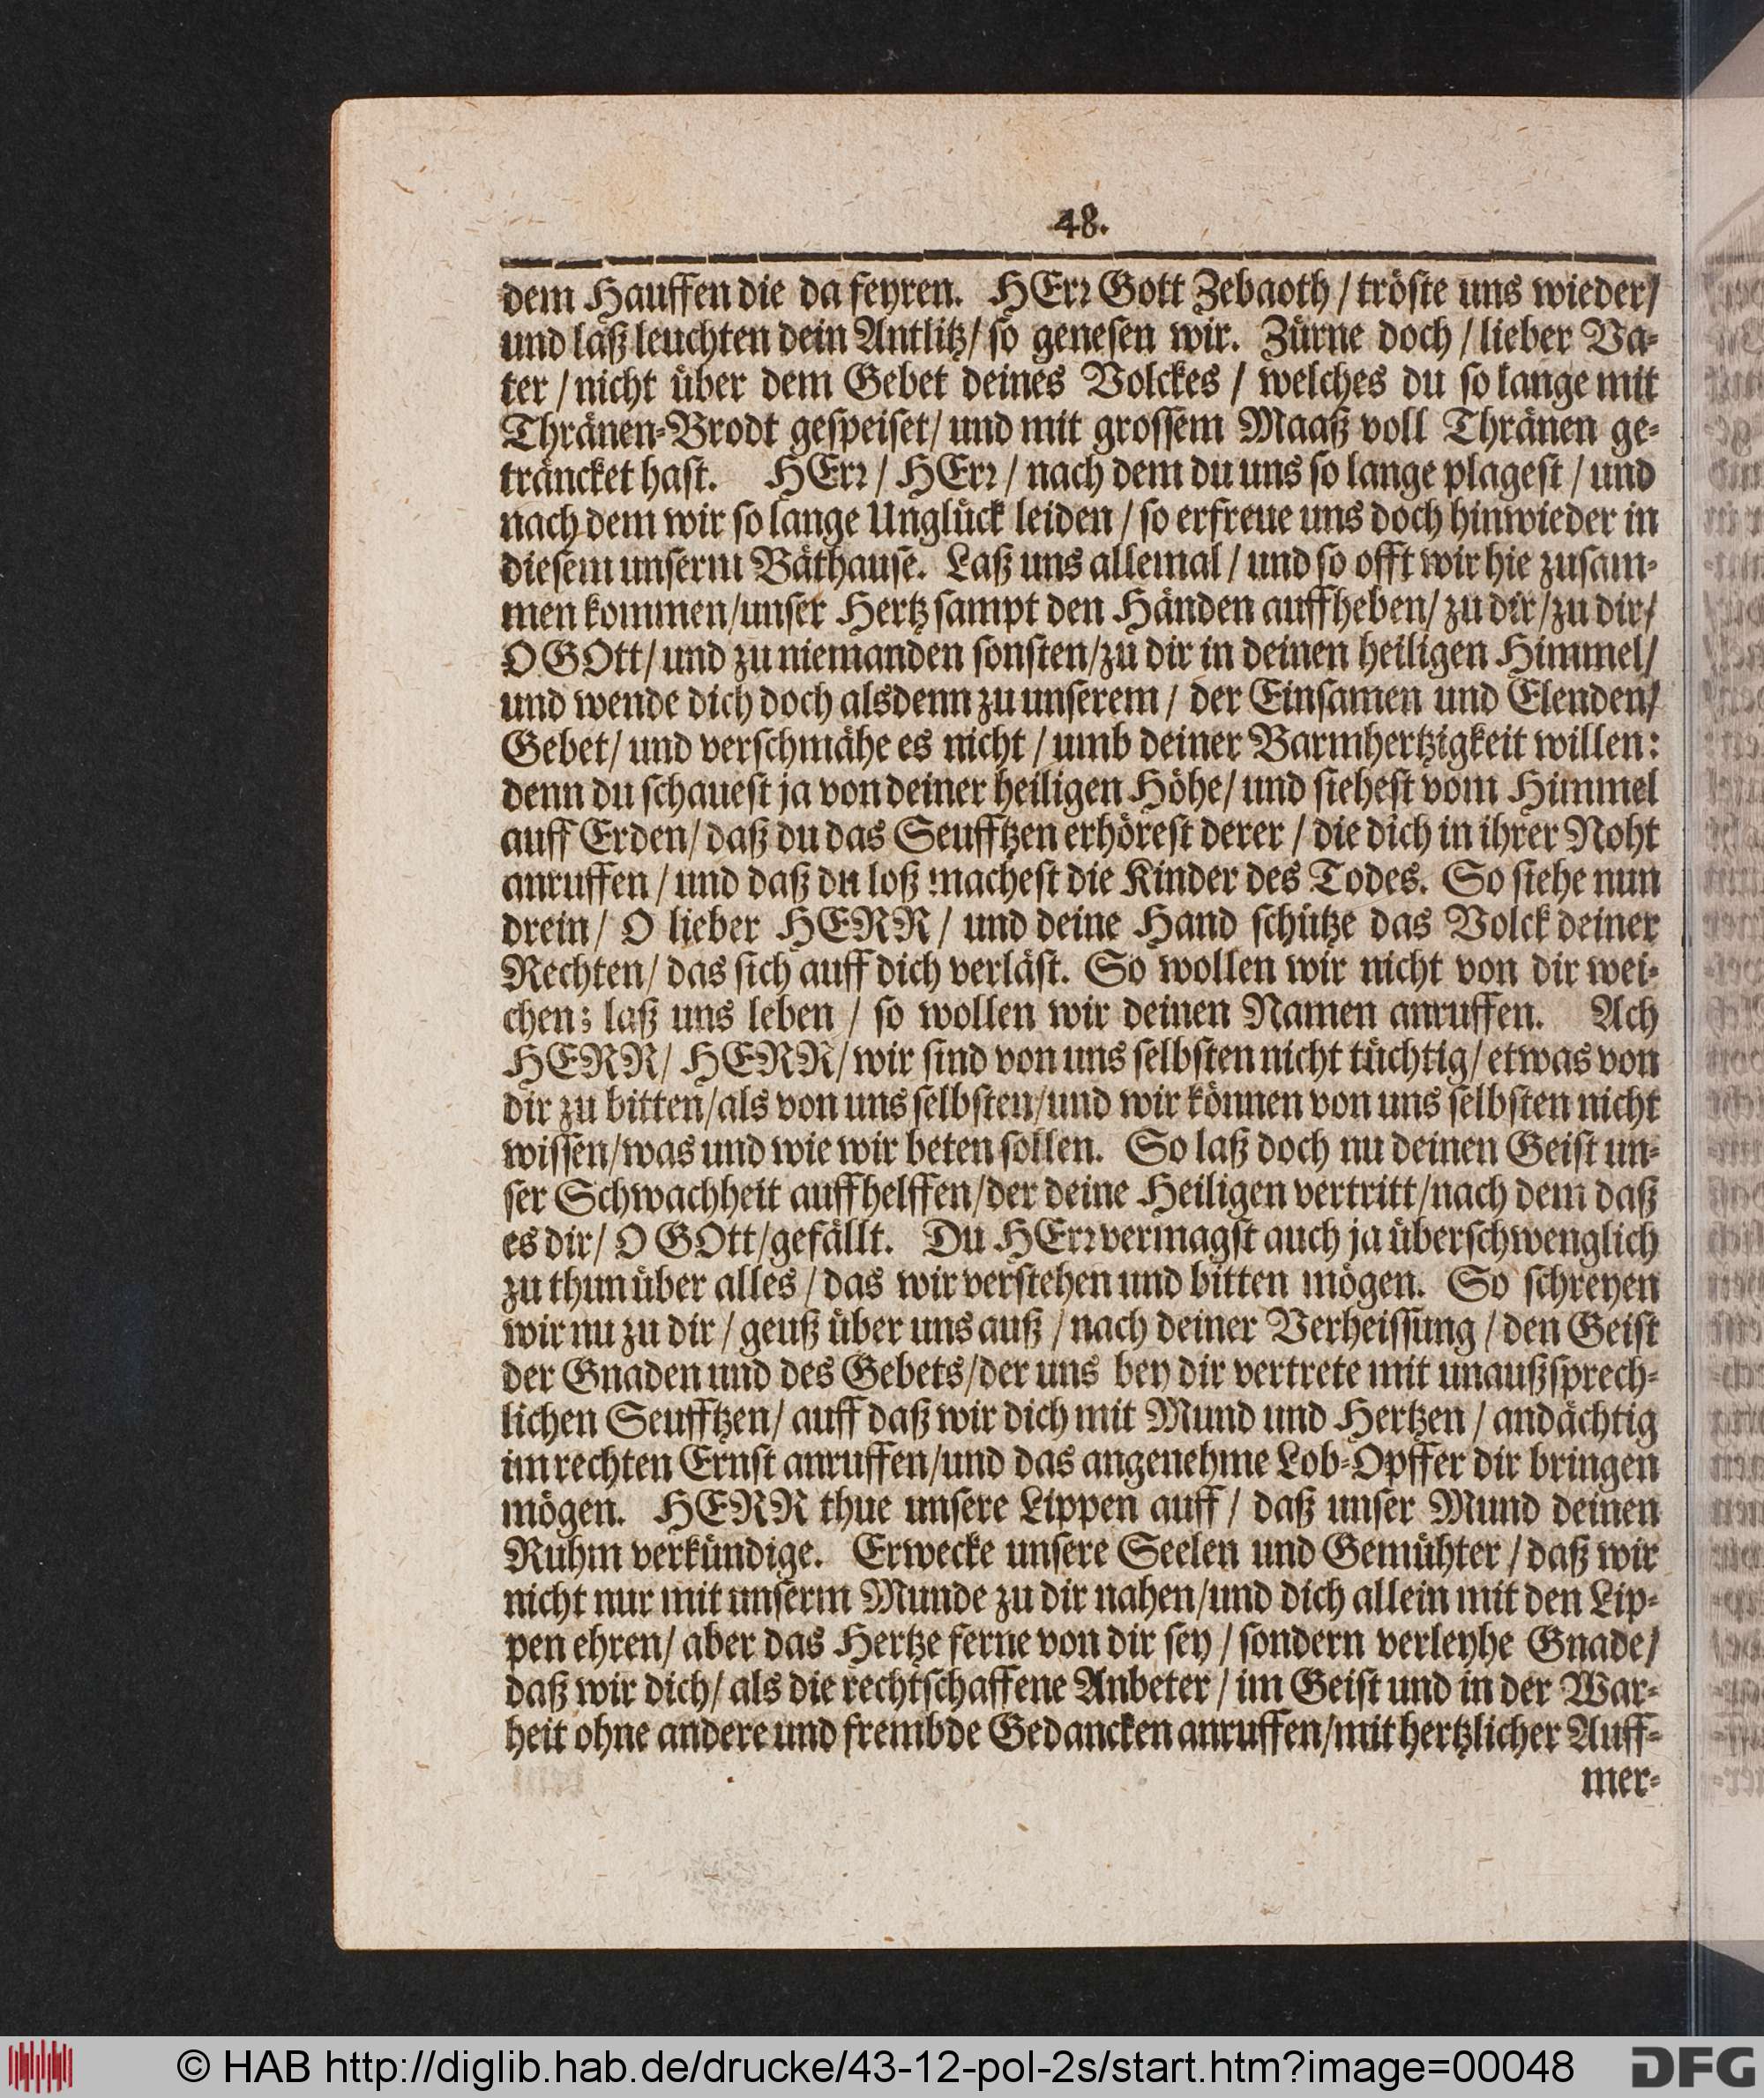 48.
dem Hauffen die da feyren. HErr Gott Zebaoth / tröste uns wieder /
und laß leuchten dein Antlitz / so genesen wir. Zürne doch / lieber Va-
ter / nicht über dem Gebet deines Volckes / welches du so lange mit
Thränen-Brodt gespeiset / und mit grossem Maaß voll Thränen ge-
träncket hast. HErr / HErr / nach dem du uns so lange plagest / und
nach dem wir so lange Unglück leiden / so erfreue uns doch hinwieder in
diesem unserm Bäthause. Laß uns allemal / und so offt wir hie zusam-
men kommen / unser Hertz sampt den Händen auffheben / zu dir / zu dir /
O GOtt / und zu niemanden sonsten / zu dir in deinen heiligen Himmel /
und wende dich doch alsdenn zu unserem / der Einsamen und Elenden /
Gebet / und verschmähe es nicht / umb deiner Barmhertzigkeit willen:
denn du schauest ja von deiner heiligen Höhe / und siehest vom Himmel
auff Erden / daß du das Seufftzen erhörest derer / die dich in ihrer Noht
anruffen / und daß du loß machest die Kinder des Todes. So siehe nun
drein / O lieber HERR / und deine Hand schütze das Volck deiner
Rechten / das sich auff dich verläst. So wollen wir nicht von dir wei-
chen; laß uns leben / so wollen wir deinen Namen anruffen. Ach
HERR / HERR / wir sind von uns selbsten nicht tüchtig / etwas von
dir zu bitten / als von uns selbsten / und wir können von uns selbsten nicht
wissen / was und wie wir beten sollen. So laß doch nu deinen Geist un-
ser Schwachheit auffhelffen / der deine Heiligen vertritt / nach dem daß
es dir / O GOtt / gefällt. Du HErr vermagst auch ja überschwenglich
zu thun über alles / das wir verstehen und bitten mögen. So schreyen
wir nu zu dir / geuß über uns auß / nach deiner Verheissung / den Geist
der Gnaden und des Gebets / der uns bey dir vertrete mit unaußsprech-
lichen Seufftzen / auff daß wir dich mit Mund und Hertzen / andächtig
im rechten Ernst anruffen / und das angenehme Lob-Opffer dir bringen
mögen. HERR thue unsere Lippen auff / daß unser Mund deinen
Ruhm verkündige. Erwecke unsere Seelen und Gemühter / daß wir
nicht nur mit unserm Munde zu dir nahen / und dich allein mit den Lip-
pen ehren / aber das Hertze ferne von dir sey / sondern verleyhe Gnade /
daß wir dich / als die rechtschaffene Anbeter / im Geist und in der War-
heit ohne andere und frembde Gedancken anruffen / mit hertzlicher Auff-
mer-
© HAB http://diglib.hab.de/drucke/43-12-pol-2s/start.htm?image=00048
DFG